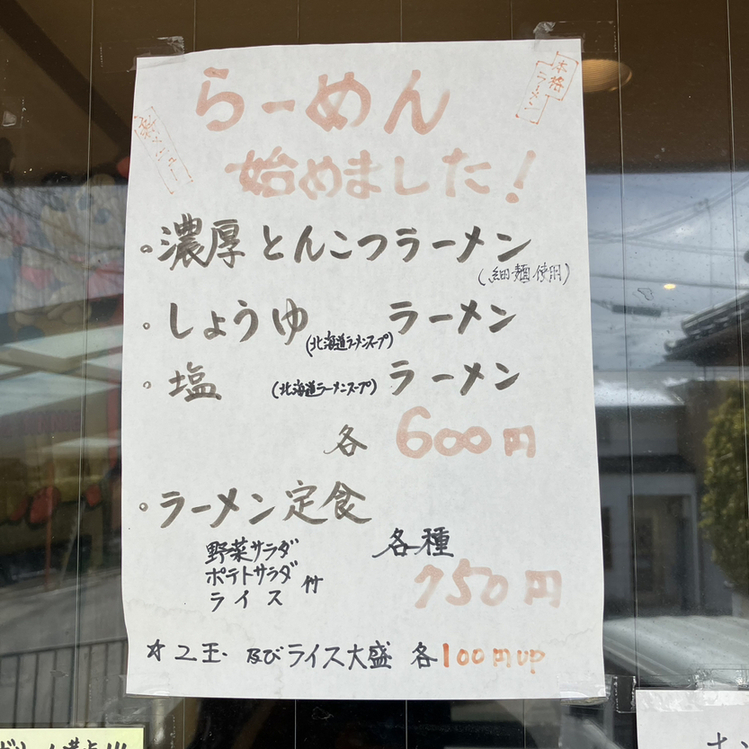 本格
ラーメン
らーめん
始めました!
・濃厚とんこつラーメン
(細麺使用)
・しょうゆ(北海道ラーメンスープ)ラーメン
・塩(北海道ラーメンスープ)ラーメン
各600円
・ラーメン定食
野菜サラダ
ポテトサラダ
ライス付
各種
750円
☆2玉・及びライス大盛各100円UP